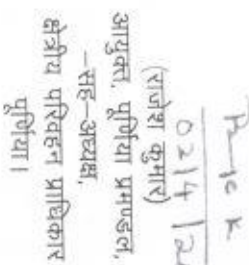 02/4/2
(राजेश कुमार)
आयुक्त, पूर्णिया प्रमण्डल,
-सह-अध्यक्ष,
क्षेत्रीय परिवहन प्राधिकार
पूर्णिया।